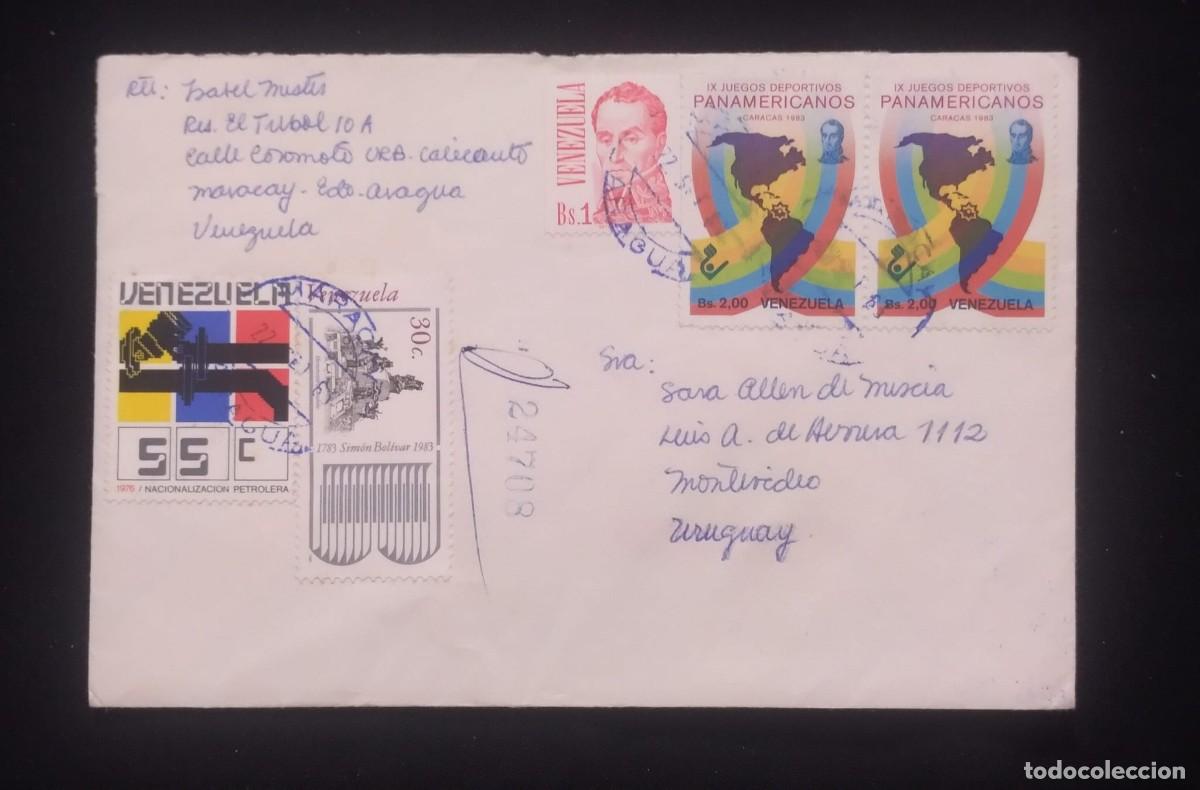 Isabel
Res. El Tubol 10 A
Calle Coromoto URB. Calicanto
Maracay - Edo. Aragua
Venezuela
VENEZUELA
Bs.1
IX JUEGOS DEPORTIVOS
PANAMERICANOS
CARACAS 1983
Bs. 2,00 VENEZUELA
IX JUEGOS DEPORTIVOS
PANAMERICANOS
CARACAS 1983
Bs. 2,00 VENEZUELA
VENEZUELA
55 c
1976 / NACIONALIZACION PETROLERA
Venezuela
30c.
1783 Simón Bolívar 1983
MARACAY
ARAGUA
247708
Sra:
Sara Allen de Muscia
Luis A. de Herrera 1112
Montevideo
Uruguay
todocoleccion